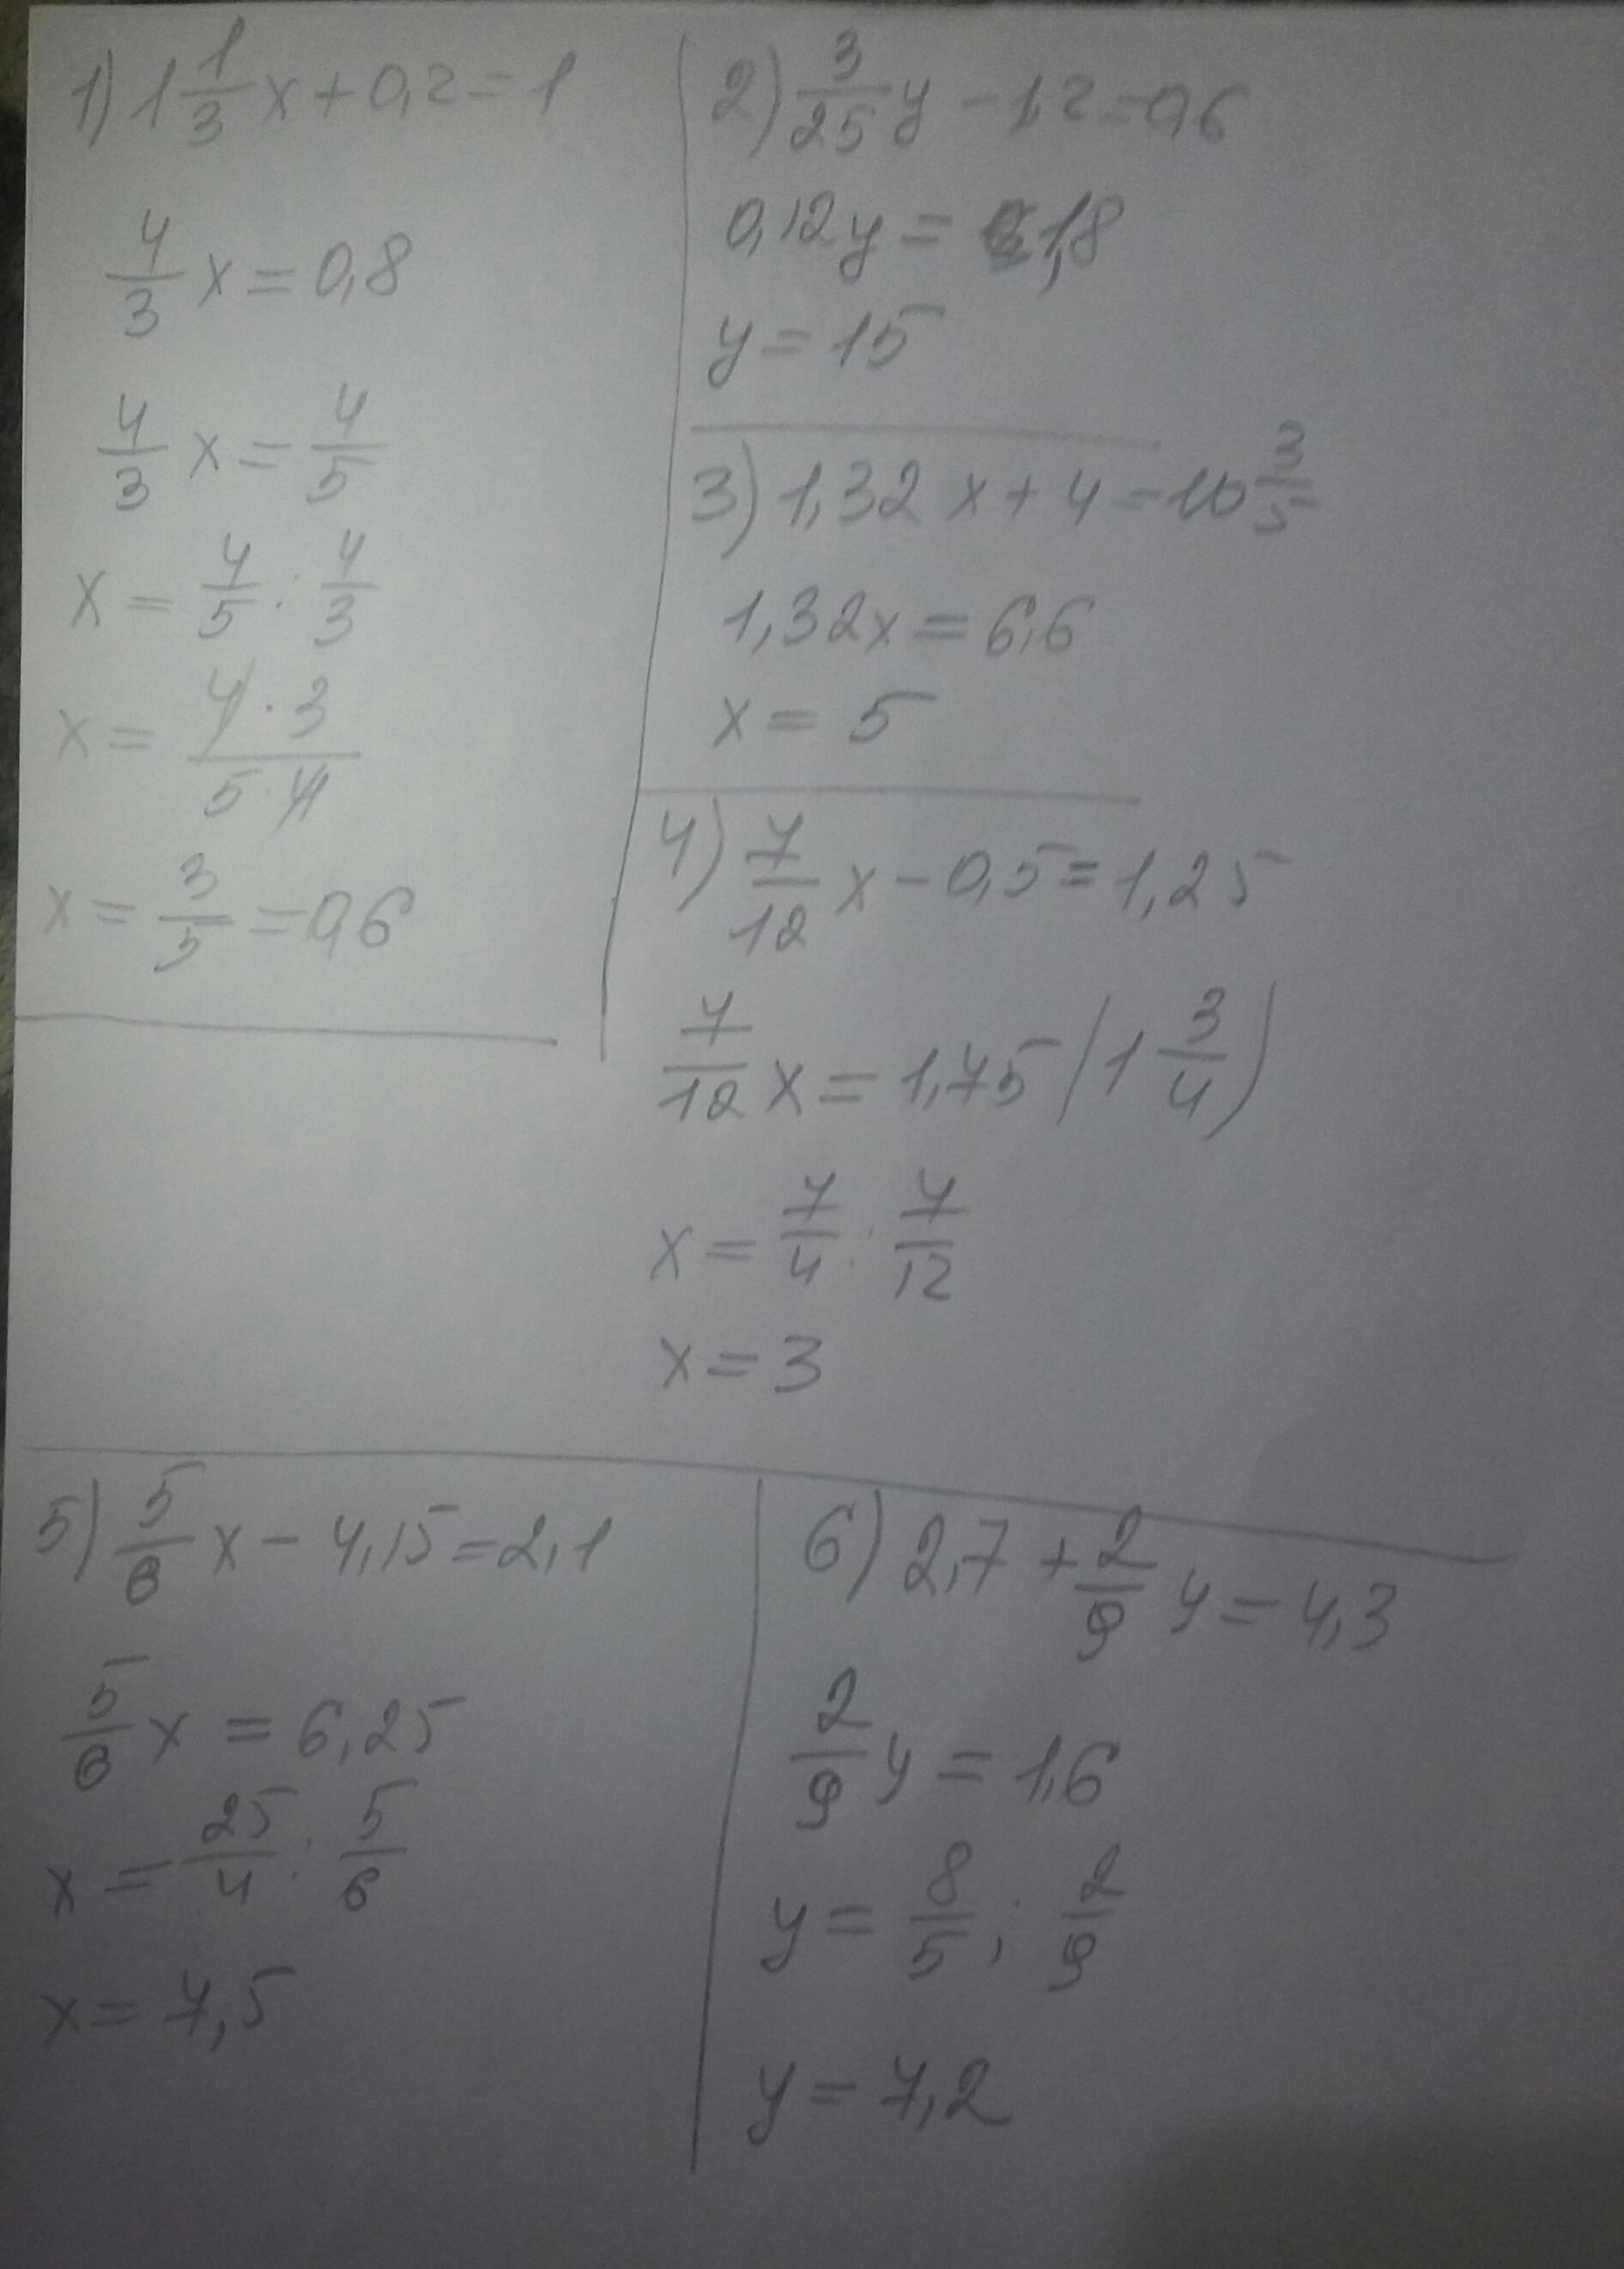 1) 1 1/3 x + 0,2 = 1
4/3 x = 0,8
4/3 x = 4/5
x = 4/5 : 4/3
x = 4·3 / 5·4
x = 3/5 = 0,6
2) 3/25 y - 1,2 = 0,6
0,12y = 1,8
y = 15
3) 1,32 x + 4 = 10 3/5
1,32x = 6,6
x = 5
4) 7/12 x - 0,5 = 1,25
7/12 x = 1,75 (1 3/4)
x = 7/4 : 7/12
x = 3
5) 5/6 x - 4,15 = 2,1
5/6 x = 6,25
x = 25/4 : 5/6
x = 7,5
6) 2,7 + 2/9 y = 4,3
2/9 y = 1,6
y = 8/5 : 2/9
y = 7,2